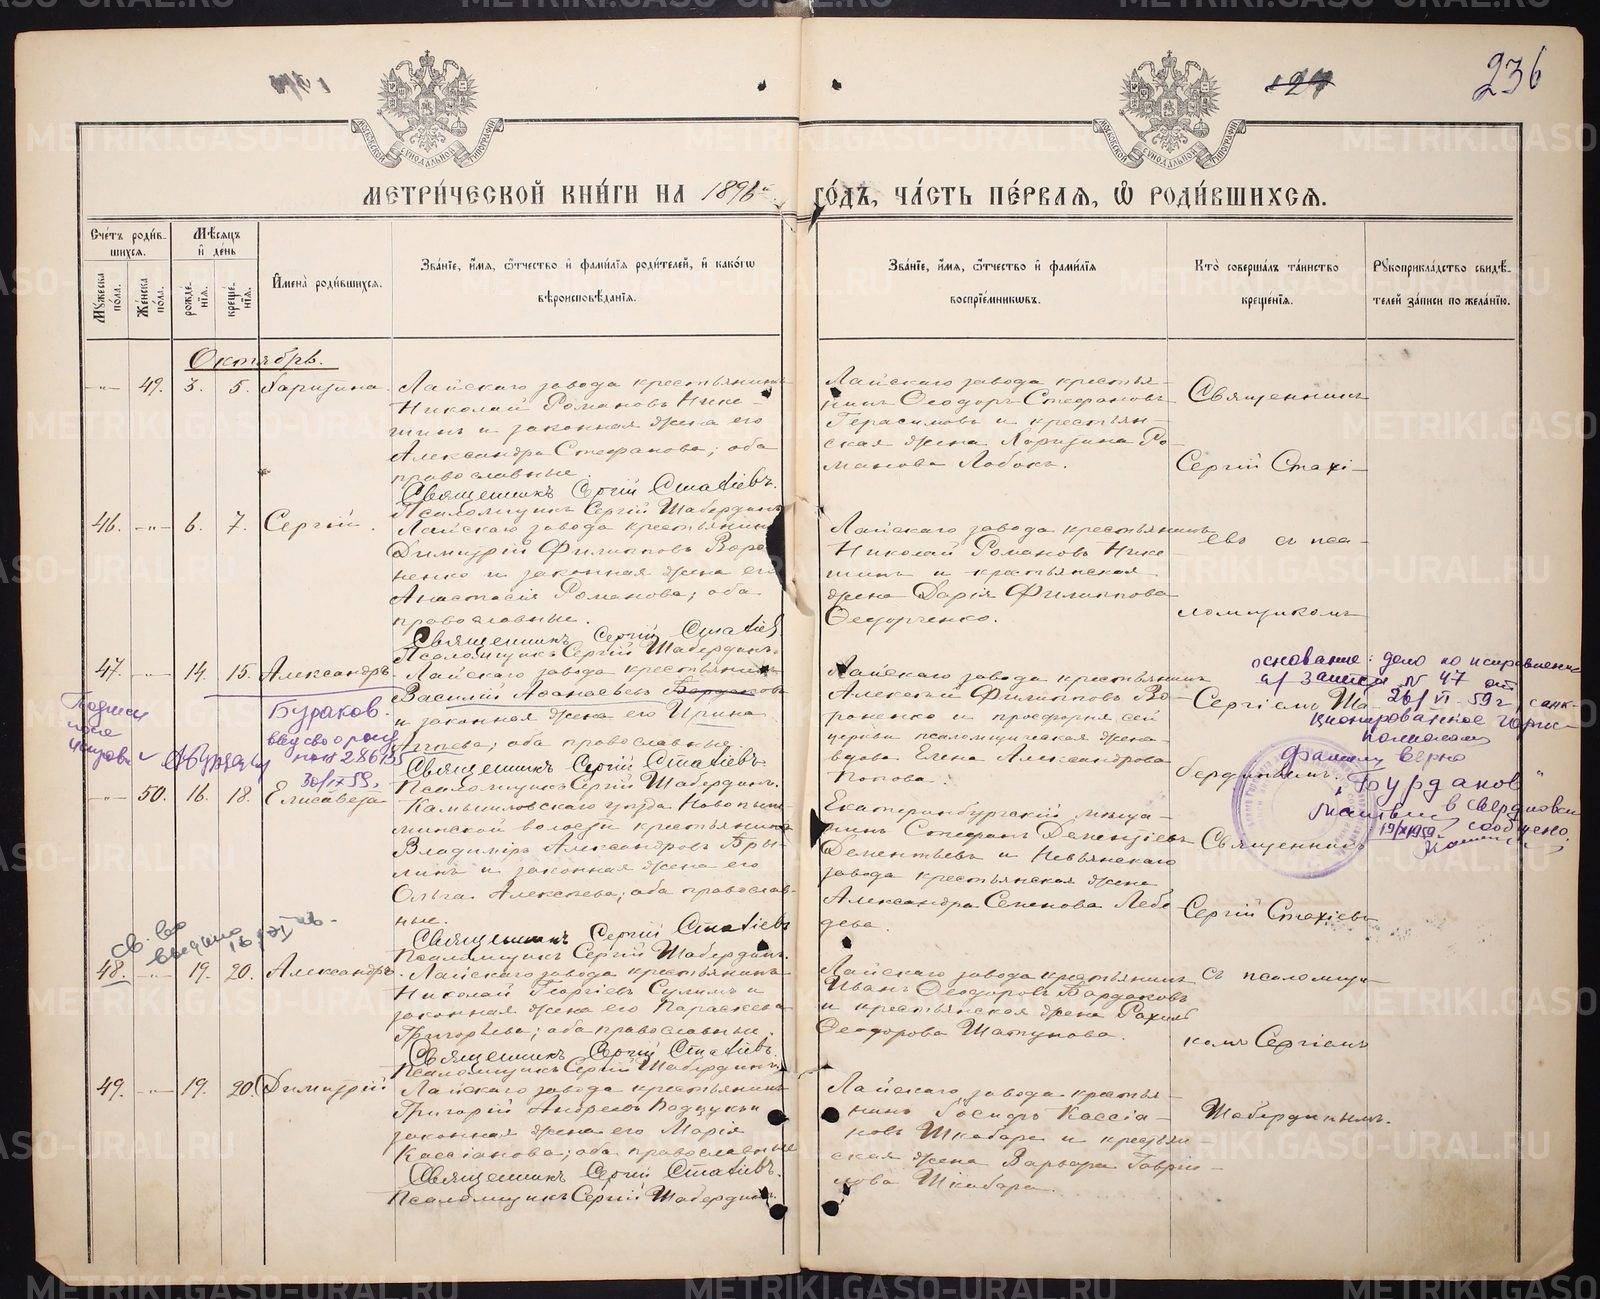 236
127
МЕТРИ́ЧЕСКОЙ КНИ́ГИ НА 1896й ГО́ДЪ, ЧА́СТЬ ПЕ́РВАЯ, Ѡ РОДИ́ВШИХСЯ.
Сче́тъ роди́в-
шихся.
Мꙋжеска
пола.
Же́нска
пола.
Мѣ́сяцъ
и҆ де́нь
рожде́-
нїя.
креще́-
нїя.
И҆мена̀ роди́вшихся.
Зва́нїе, и҆́мя, ѻ҆́тчество и҆ фами́лїя роди́телей, и҆ како́гѡ
вѣроисповѣ́данїя.
Зва́нїе, и҆́мя, ѻ҆́тчество и҆ фами́лїя
воспрїе́мникѡвъ.
Кто̀ соверша́лъ та́инство
креще́нїя.
Рꙋкоприкла́дство свидѣ́-
телей за́писи по жела́нїю.
Октябрь.
49. 3. 5. Харитина
Лайскаго завода крестьянинъ
Николай Романовъ Нике-
шинъ и законная жена его
Александра Стефанова; оба
православные
Священникъ Сергій Стахіевъ.
Псаломщикъ Сергій Шабердинъ
Лайскаго завода крестья-
нинъ Ѳеодоръ Стефановъ
Герасимовъ и крестьян-
ская жена Харитина Ро-
манова Лобокъ.
Священникъ
Сергій Стахі-
46. 6. 7. Сергій.
Лайскаго завода крестьянинъ
Димитрій Филипповъ Воро-
ненко и законная жена его
Анастасія Романова; оба
православные.
Священникъ Сергій Стахіевъ
Псаломщикъ Сергій Шабердинъ
Лайскаго завода крестьянинъ
Николай Романовъ Нике-
шинъ и крестьянская
жена Дарія Филиппова
Ѳедорченко.
евъ съ пса-
ломщикомъ
47. 14. 15. Александръ
Лайскаго завода крестьянинъ
Василий Аѳанасьевъ
и законная жена его Ирина
оба православные.
Священникъ Сергій Стахіевъ
Псаломщикъ Сергій Шабердинъ.
Бураков.
30/IX 59.
Лайскаго завода крестьянинъ
Алексѣй Филипповъ Во-
роненко и просфорня сей
церкви псаломщическая жена-
вдова Елена Александрова
Попова.
Сергіемъ Ша-
бердинымъ.
основание: дело по исправлению
а/ записи № 47 от
26/VI - 59г.
фамилию верно
"Бурданов"
сообщено
50. 16. 18. Елисавета
Камышловскаго уѣзда Новопыш-
минской волости крестьянинъ
Владиміръ Александровъ Бры-
линъ и законная жена его
Ольга Алексѣева; оба православ-
ные.
Священникъ Сергій Стахіевъ
Псаломщикъ Сергій Шабердинъ.
Екатеринбургскій мѣща-
нинъ Стефанъ Дементіевъ
Дементьевъ и Невьянскаго
завода крестьянская жена
Александра Семенова Лебе-
дева.
Священникъ
Сергій Стахіевъ
св-во
48. 19. 20. Александръ
Лайскаго завода крестьянинъ
Николай Георгіевъ Сулимъ и
законная жена его Параскева
Григорьева; оба православные.
Священникъ Сергій Стахіевъ.
Псаломщикъ Сергій Шабердинъ
Лайскаго завода крестьянинъ
Иванъ Ѳеодоровъ Бардаковъ
и крестьянская жена Рахиль
Ѳеодорова Шатунова.
съ псаломщи-
комъ Сергіемъ
49. 19. 20. Димитрій
Лайскаго завода крестьянинъ
Григорій Андреевъ
законная жена его Марія
Кассіанова; оба православные
Священникъ Сергій Стахіевъ.
Псаломщикъ Сергій Шабердинъ.
Лайскаго завода крестья-
нинъ Кассіа-
новъ Шкабара и крестьян-
ская жена Варвара Гаври-
лова Шкабара.
Шабердинымъ.
METRIKI.GASO-URAL.RU